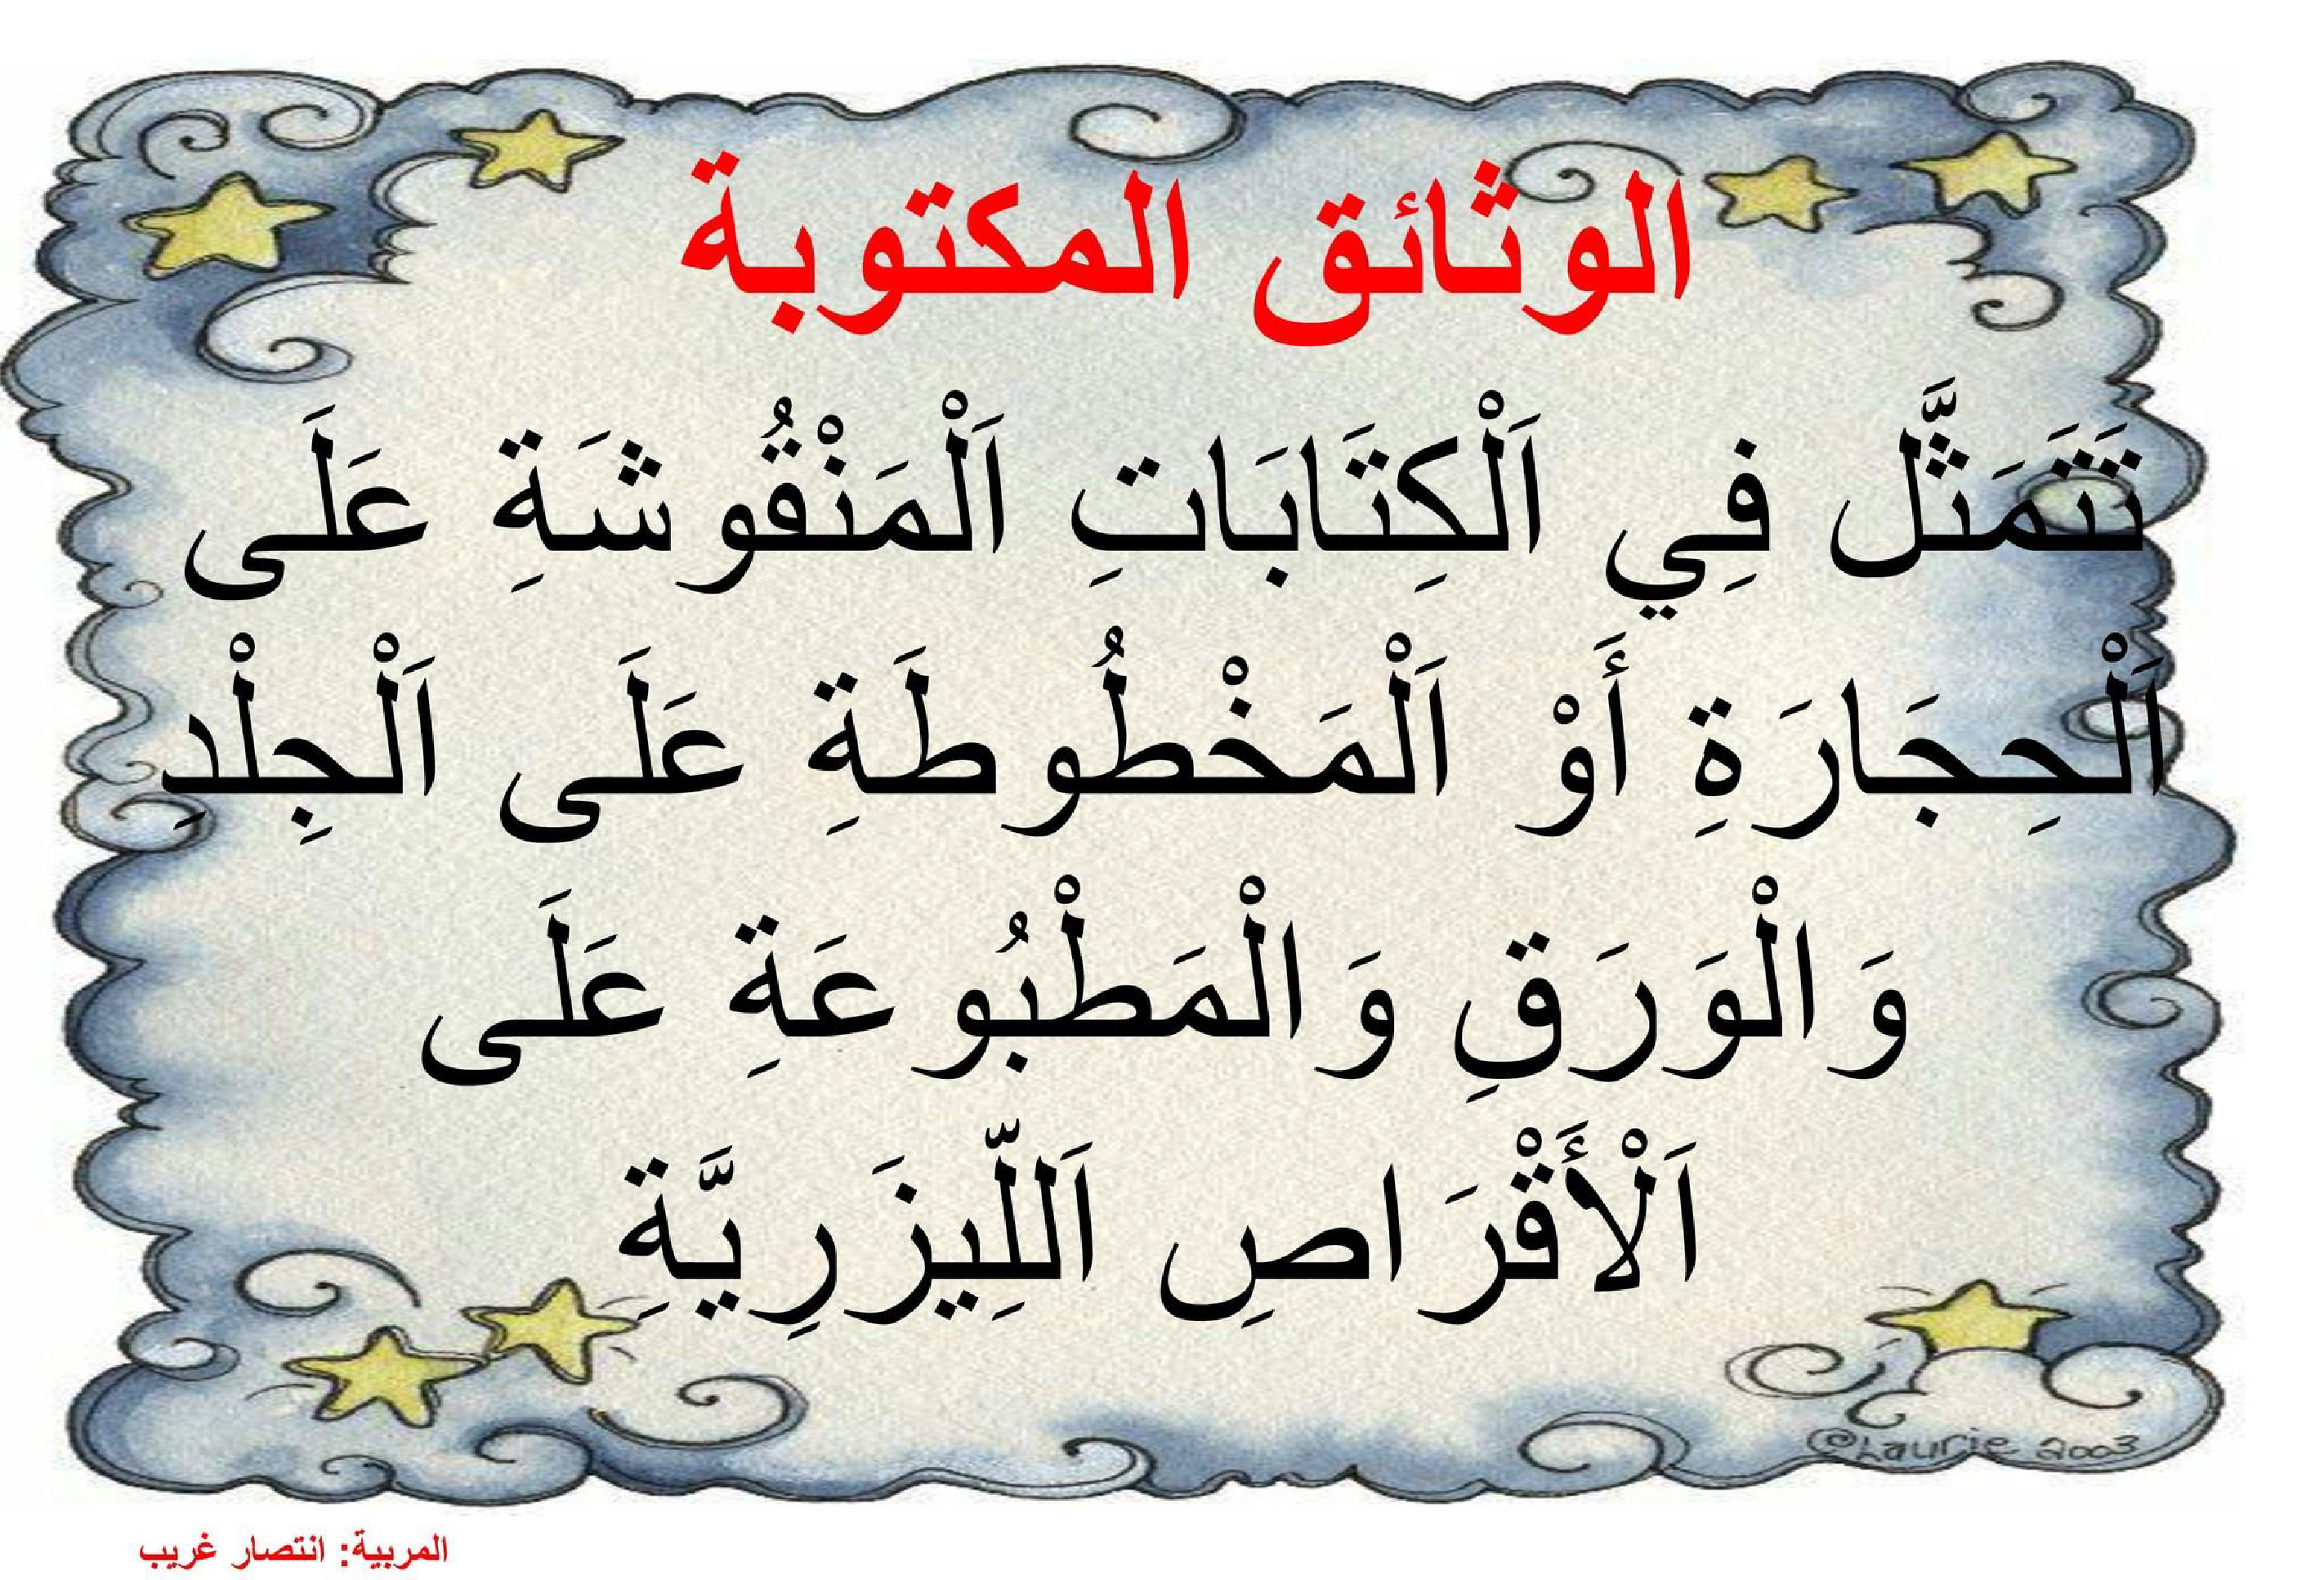 الوثائق المكتوبة
تَتَمَثَّل فِي اَلْكِتَابَاتِ اَلْمَنْقُوشَةِ عَلَى
اَلْحِجَارَةِ أَوْ اَلْمَخْطُوطَةِ عَلَى اَلْجِلْدِ
وَالْوَرَقِ وَالْمَطْبُوعَةِ عَلَى
اَلْأَقْرَاصِ اَللِّيزَرِيَّةِ
©Laurie 2003
المربية: انتصار غريب